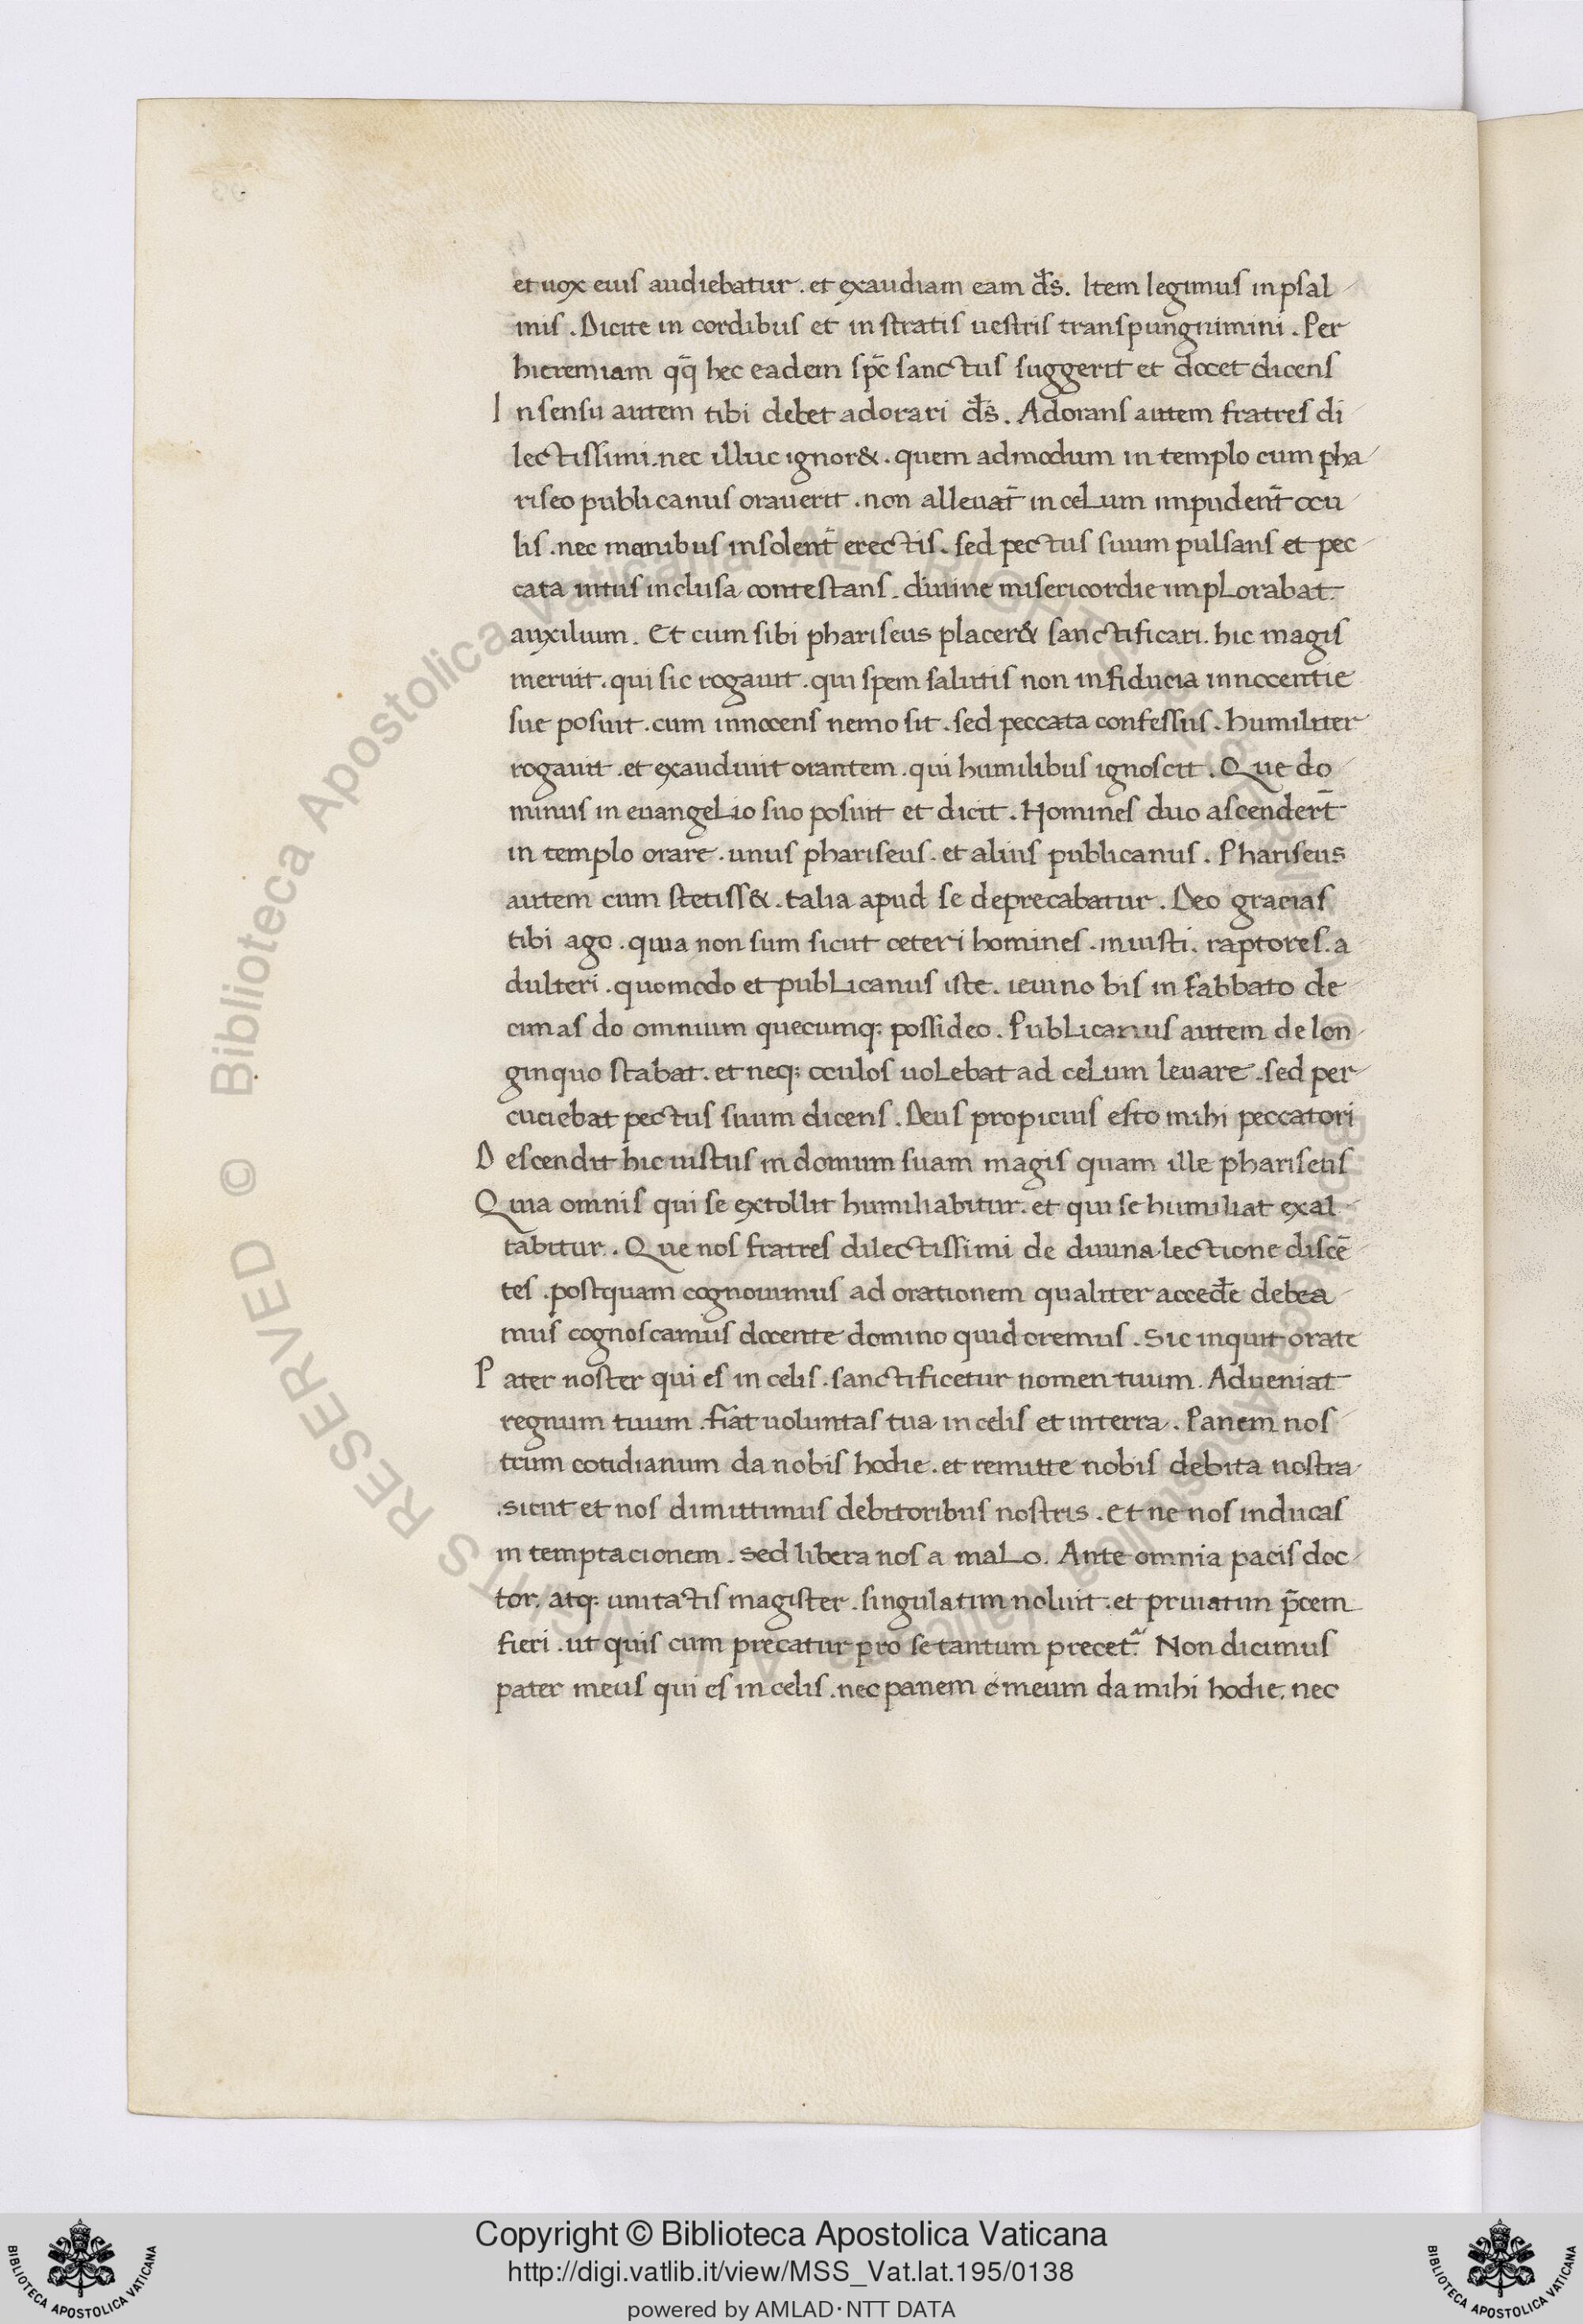 et uox eius audiebatur. et exaudiam eam d̅s. Item legimus in psal
mis. Dicite in cordibus et in stratis uestris transpungnimini. Per
hieremiam qq̅ hec eadem sp̅c sanctus suggerit et docet dicens
In sensu autem tibi debet adorari d̅s. Adorans autem fratres di
lectissimi. nec illuc ignor&. quem admodum in templo cum pha
riseo publicanus orauerit. non alleuat̅ in celum impudent̅ ocu
lis. nec manibus insolent̅ erectis. sed pectus suum pulsans et pec
cata intus inclusa contestans. diuine misericordie implorabat
auxilium. Et cum sibi phariseus placer& sanctificari. hic magis
meruit. qui sic rogauit. qui spem salutis non in fiducia innocentie
sue posuit. cum innocens nemo sit. sed peccata confessus. humiliter
rogauit. et exaudiuit orantem. qui humilibus ignoscit. Que do
minus in euangelio suo posuit et dicit. Homines duo ascendert̅
in templo orare. unus phariseus. et alius publicanus. Phariseus
autem cum stetiss&. talia apud se deprecabatur. Deo gracias
tibi ago. quia non sum sicut ceteri homines. iniusti. raptores. a
dulteri. quomodo et publicanus iste. ieiuno bis in sabbato de
cimas do omnium quecumq; possideo. Publicanus autem de lon
ginquo stabat. et neq; oculos uolebat ad celum leuare. sed per
cuciebat pectus suum dicens. Deus propicius esto mihi peccatori
Descendit hic iustus in domum suam magis quam ille phariseus
Quia omnis qui se extollit humiliabitur. et qui se humiliat exal
tabitur. Que nos fratres dilectissimi de diuina lectione disce̅
tes. postquam cognouimus ad orationem qualiter acced̅e debea
mus cognoscamus docente domino quid oremus. Sic inquit orate
Pater noster qui es in celis. sanctificetur nomen tuum. Adueniat
regnum tuum. fiat uoluntas tua in celis et in terra. Panem nos
trum cotidianum da nobis hodie. et remitte nobis debita nostra
.sicut et nos dimittimus debitoribus nostris. Et ne nos inducas
in temptacionem. sed libera nos a malo. Ante omnia pacis doc
tor. atq; unitatis magister. singulatim noluit. et priuatim p̅cem
fieri. ut quis cum precatur pro se tantum precet.᷒ Non dicimus
pater meus qui es in celis. nec panem meum da mihi hodie. nec
Copyright © Biblioteca Apostolica Vaticana
http://digi.vatlib.it/view/MSS_Vat.lat.195/0138
powered by AMLAD·NTT DATA